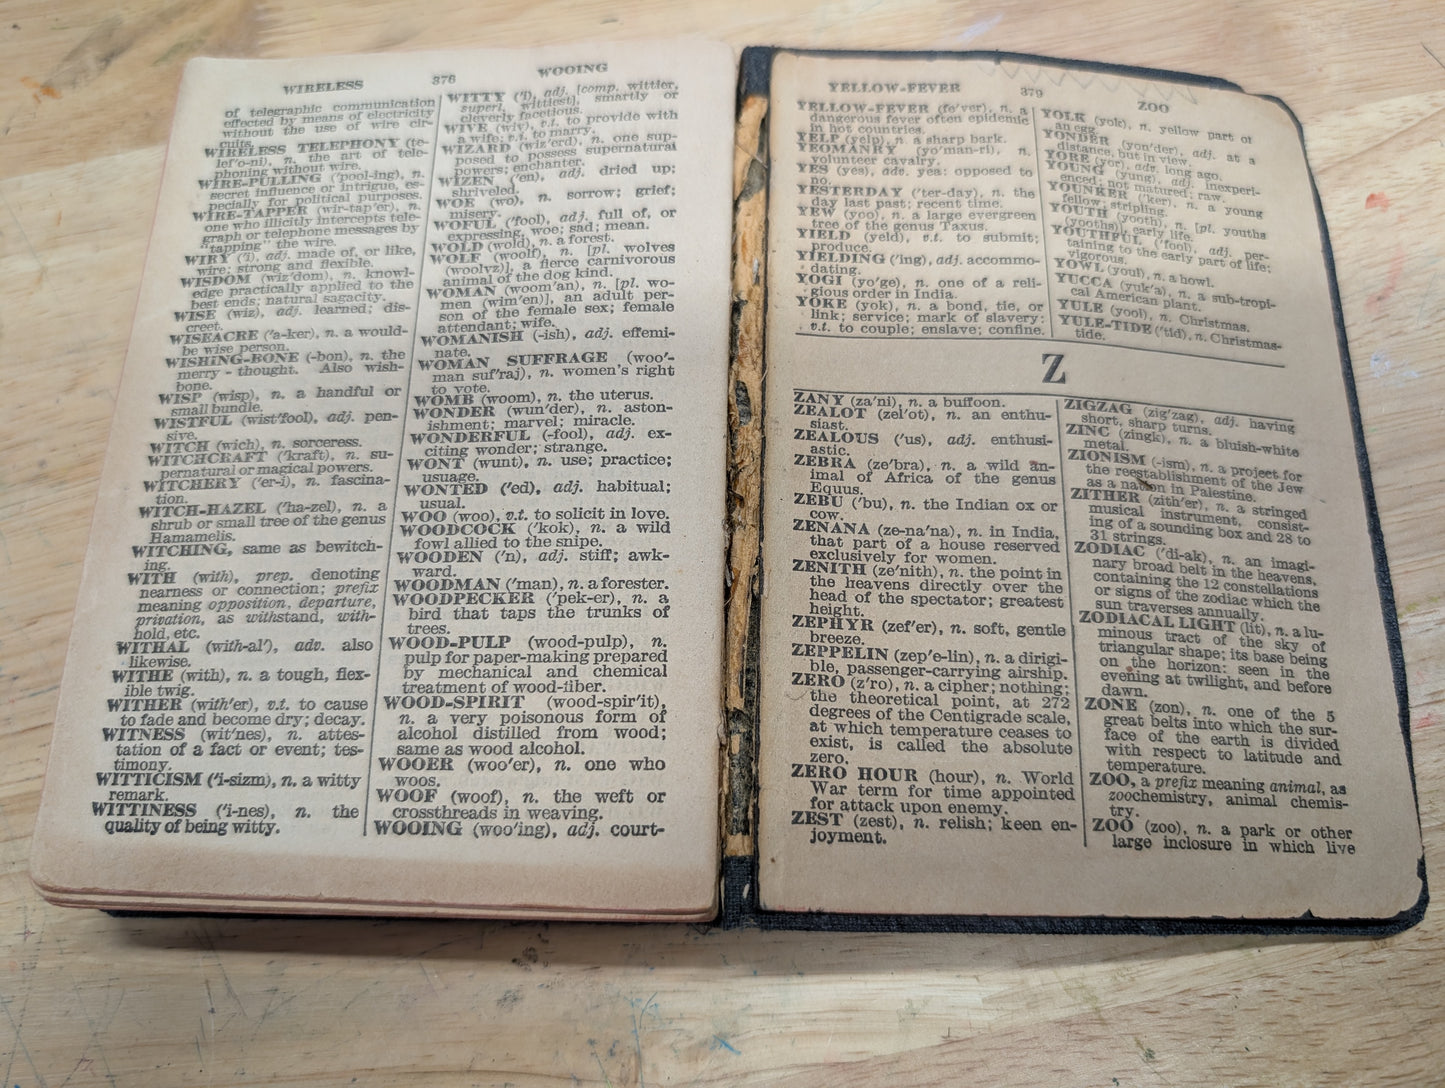 WIRELESS 376 WOOING
of telegraphic communication
effected by means of electricity
without the use of wire cir-
cuits.
WIRELESS TELEPHONY (te-
lef'o-ni), n. the art of tele-
phoning without wire.
WIRE-PULLING ('pool-ing), n.
secret influence or intrigue, es-
pecially for political purposes.
WIRE-TAPPER (wir-tap'er), n.
one who illicitly intercepts tele-
graph or telephone messages by
"tapping" the wire.
WIRY ('i), adj. made of, or like,
wire; strong and flexible.
WISDOM (wiz'dom), n. knowl-
edge practically applied to the
best ends; natural sagacity.
WISE (wiz), adj. learned; dis-
creet.
WISEACRE ('a-ker), n. a would-
be wise person.
WISHING-BONE (-bon), n. the
merry - thought. Also wish-
bone.
WISP (wisp), n. a handful or
small bundle.
WISTFUL (wist'fool), adj. pen-
sive.
WITCH (wich), n. sorceress.
WITCHCRAFT ('kraft), n. su-
pernatural or magical powers.
WITCHERY ('er-i), n. fascina-
tion.
WITCH-HAZEL ('ha-zel), n. a
shrub or small tree of the genus
Hamamelis.
WITCHING, same as bewitch-
ing.
WITH (with), prep. denoting
nearness or connection; prefix
meaning opposition, departure,
privation, as withstand, with-
hold, etc.
WITHAL (with-al'), adv. also
likewise.
WITHE (with), n. a tough, flex-
ible twig.
WITHER (with'er), v.t. to cause
to fade and become dry; decay.
WITNESS (wit'nes), n. attes-
tation of a fact or event; tes-
timony.
WITTICISM ('i-sizm), n. a witty
remark.
WITTINESS ('i-nes), n. the
quality of being witty.
WITTY ('i), adj. [comp. wittier,
superl. wittiest], smartly or
cleverly facetious.
WIVE (wiv), v.t. to provide with
a wife; v.i. to marry.
WIZARD (wiz'erd), n. one sup-
posed to possess supernatural
powers; enchanter.
WIZEN ('en), adj. dried up;
shriveled.
WOE (wo), n. sorrow; grief;
misery.
WOFUL ('fool), adj. full of, or
expressing, woe; sad; mean.
WOLD (wold), n. a forest.
WOLF (woolf), n. [pl. wolves
(woolvz)], a fierce carnivorous
animal of the dog kind.
WOMAN (woom'an), n. [pl. wo-
men (wim'en)], an adult per-
son of the female sex; female
attendant; wife.
WOMANISH (-ish), adj. effemi-
nate.
WOMAN SUFFRAGE (woo'-
man suf'raj), n. women's right
to vote.
WOMB (woom), n. the uterus.
WONDER (wun'der), n. aston-
ishment; marvel; miracle.
WONDERFUL (-fool), adj. ex-
citing wonder; strange.
WONT (wunt), n. use; practice;
usuage.
WONTED ('ed), adj. habitual;
usual.
WOO (woo), v.t. to solicit in love.
WOODCOCK ('kok), n. a wild
fowl allied to the snipe.
WOODEN ('n), adj. stiff; awk-
ward.
WOODMAN ('man), n. a forester.
WOODPECKER ('pek-er), n. a
bird that taps the trunks of
trees.
WOOD-PULP (wood-pulp), n.
pulp for paper-making prepared
by mechanical and chemical
treatment of wood-fiber.
WOOD-SPIRIT (wood-spir'it),
n. a very poisonous form of
alcohol distilled from wood;
same as wood alcohol.
WOOER (woo'er), n. one who
woos.
WOOF (woof), n. the weft or
crossthreads in weaving.
WOOING (woo'ing), adj. court-
YELLOW-FEVER 379 ZOO
YELLOW-FEVER (fe'ver), n. a
dangerous fever often epidemic
in hot countries.
YELP (yelp), n. a sharp bark.
YEOMANRY (yo'man-ri), n.
volunteer cavalry.
YES (yes), adv. yea: opposed to
no.
YESTERDAY ('ter-day), n. the
day last past; recent time.
YEW (yoo), n. a large evergreen
tree of the genus Taxus.
YIELD (yeld), v.t. to submit;
produce.
YIELDING ('ing), adj. accommo-
dating.
YOGI (yo'ge), n. one of a reli-
gious order in India.
YOKE (yok), n. a bond, tie, or
link; service; mark of slavery:
v.t. to couple; enslave; confine.
YOLK (yok), n. yellow part of
an egg.
YONDER (yon'der), adj. at a
distance, but in view.
YORE (yor), adv. long ago.
YOUNG (yung), adj. inexperi-
enced; not matured; raw.
YOUNKER ('ker), n. a young
fellow; stripling.
YOUTH (yooth), n. [pl. youths
(yooths)], early life.
YOUTHFUL ('fool), adj. per-
taining to the early part of life;
vigorous.
YOWL (youl), n. a howl.
YUCCA (yuk'a), n. a sub-tropi-
cal American plant.
YULE (yool), n. Christmas.
YULE-TIDE ('tid), n. Christmas-
tide.
Z
ZANY (za'ni), n. a buffoon.
ZEALOT (zel'ot), n. an enthu-
siast.
ZEALOUS ('us), adj. enthusi-
astic.
ZEBRA (ze'bra), n. a wild an-
imal of Africa of the genus
Equus.
ZEBU ('bu), n. the Indian ox or
cow.
ZENANA (ze-na'na), n. in India,
that part of a house reserved
exclusively for women.
ZENITH (ze'nith), n. the point in
the heavens directly over the
head of the spectator; greatest
height.
ZEPHYR (zef'er), n. soft, gentle
breeze.
ZEPPELIN (zep'e-lin), n. a dirigi-
ble, passenger-carrying airship.
ZERO (z'ro), n. a cipher; nothing;
the theoretical point, at 272
degrees of the Centigrade scale,
at which temperature ceases to
exist, is called the absolute
zero.
ZERO HOUR (hour), n. World
War term for time appointed
for attack upon enemy.
ZEST (zest), n. relish; keen en-
joyment.
ZIGZAG (zig'zag), adj. having
short, sharp turns.
ZINC (zingk), n. a bluish-white
metal.
ZIONISM (-ism), n. a project for
the reestablishment of the Jew
as a nation in Palestine.
ZITHER (zith'er), n. a stringed
musical instrument, consist-
ing of a sounding box and 28 to
31 strings.
ZODIAC ('di-ak), n. an imagi-
nary broad belt in the heavens,
containing the 12 constellations
or signs of the zodiac which the
sun traverses annually.
ZODIACAL LIGHT (lit), n. a lu-
minous tract of the sky of
triangular shape; its base being
on the horizon: seen in the
evening at twilight, and before
dawn.
ZONE (zon), n. one of the 5
great belts into which the sur-
face of the earth is divided
with respect to latitude and
temperature.
ZOO, a prefix meaning animal, as
zoochemistry, animal chemis-
try.
ZOO (zoo), n. a park or other
large inclosure in which live